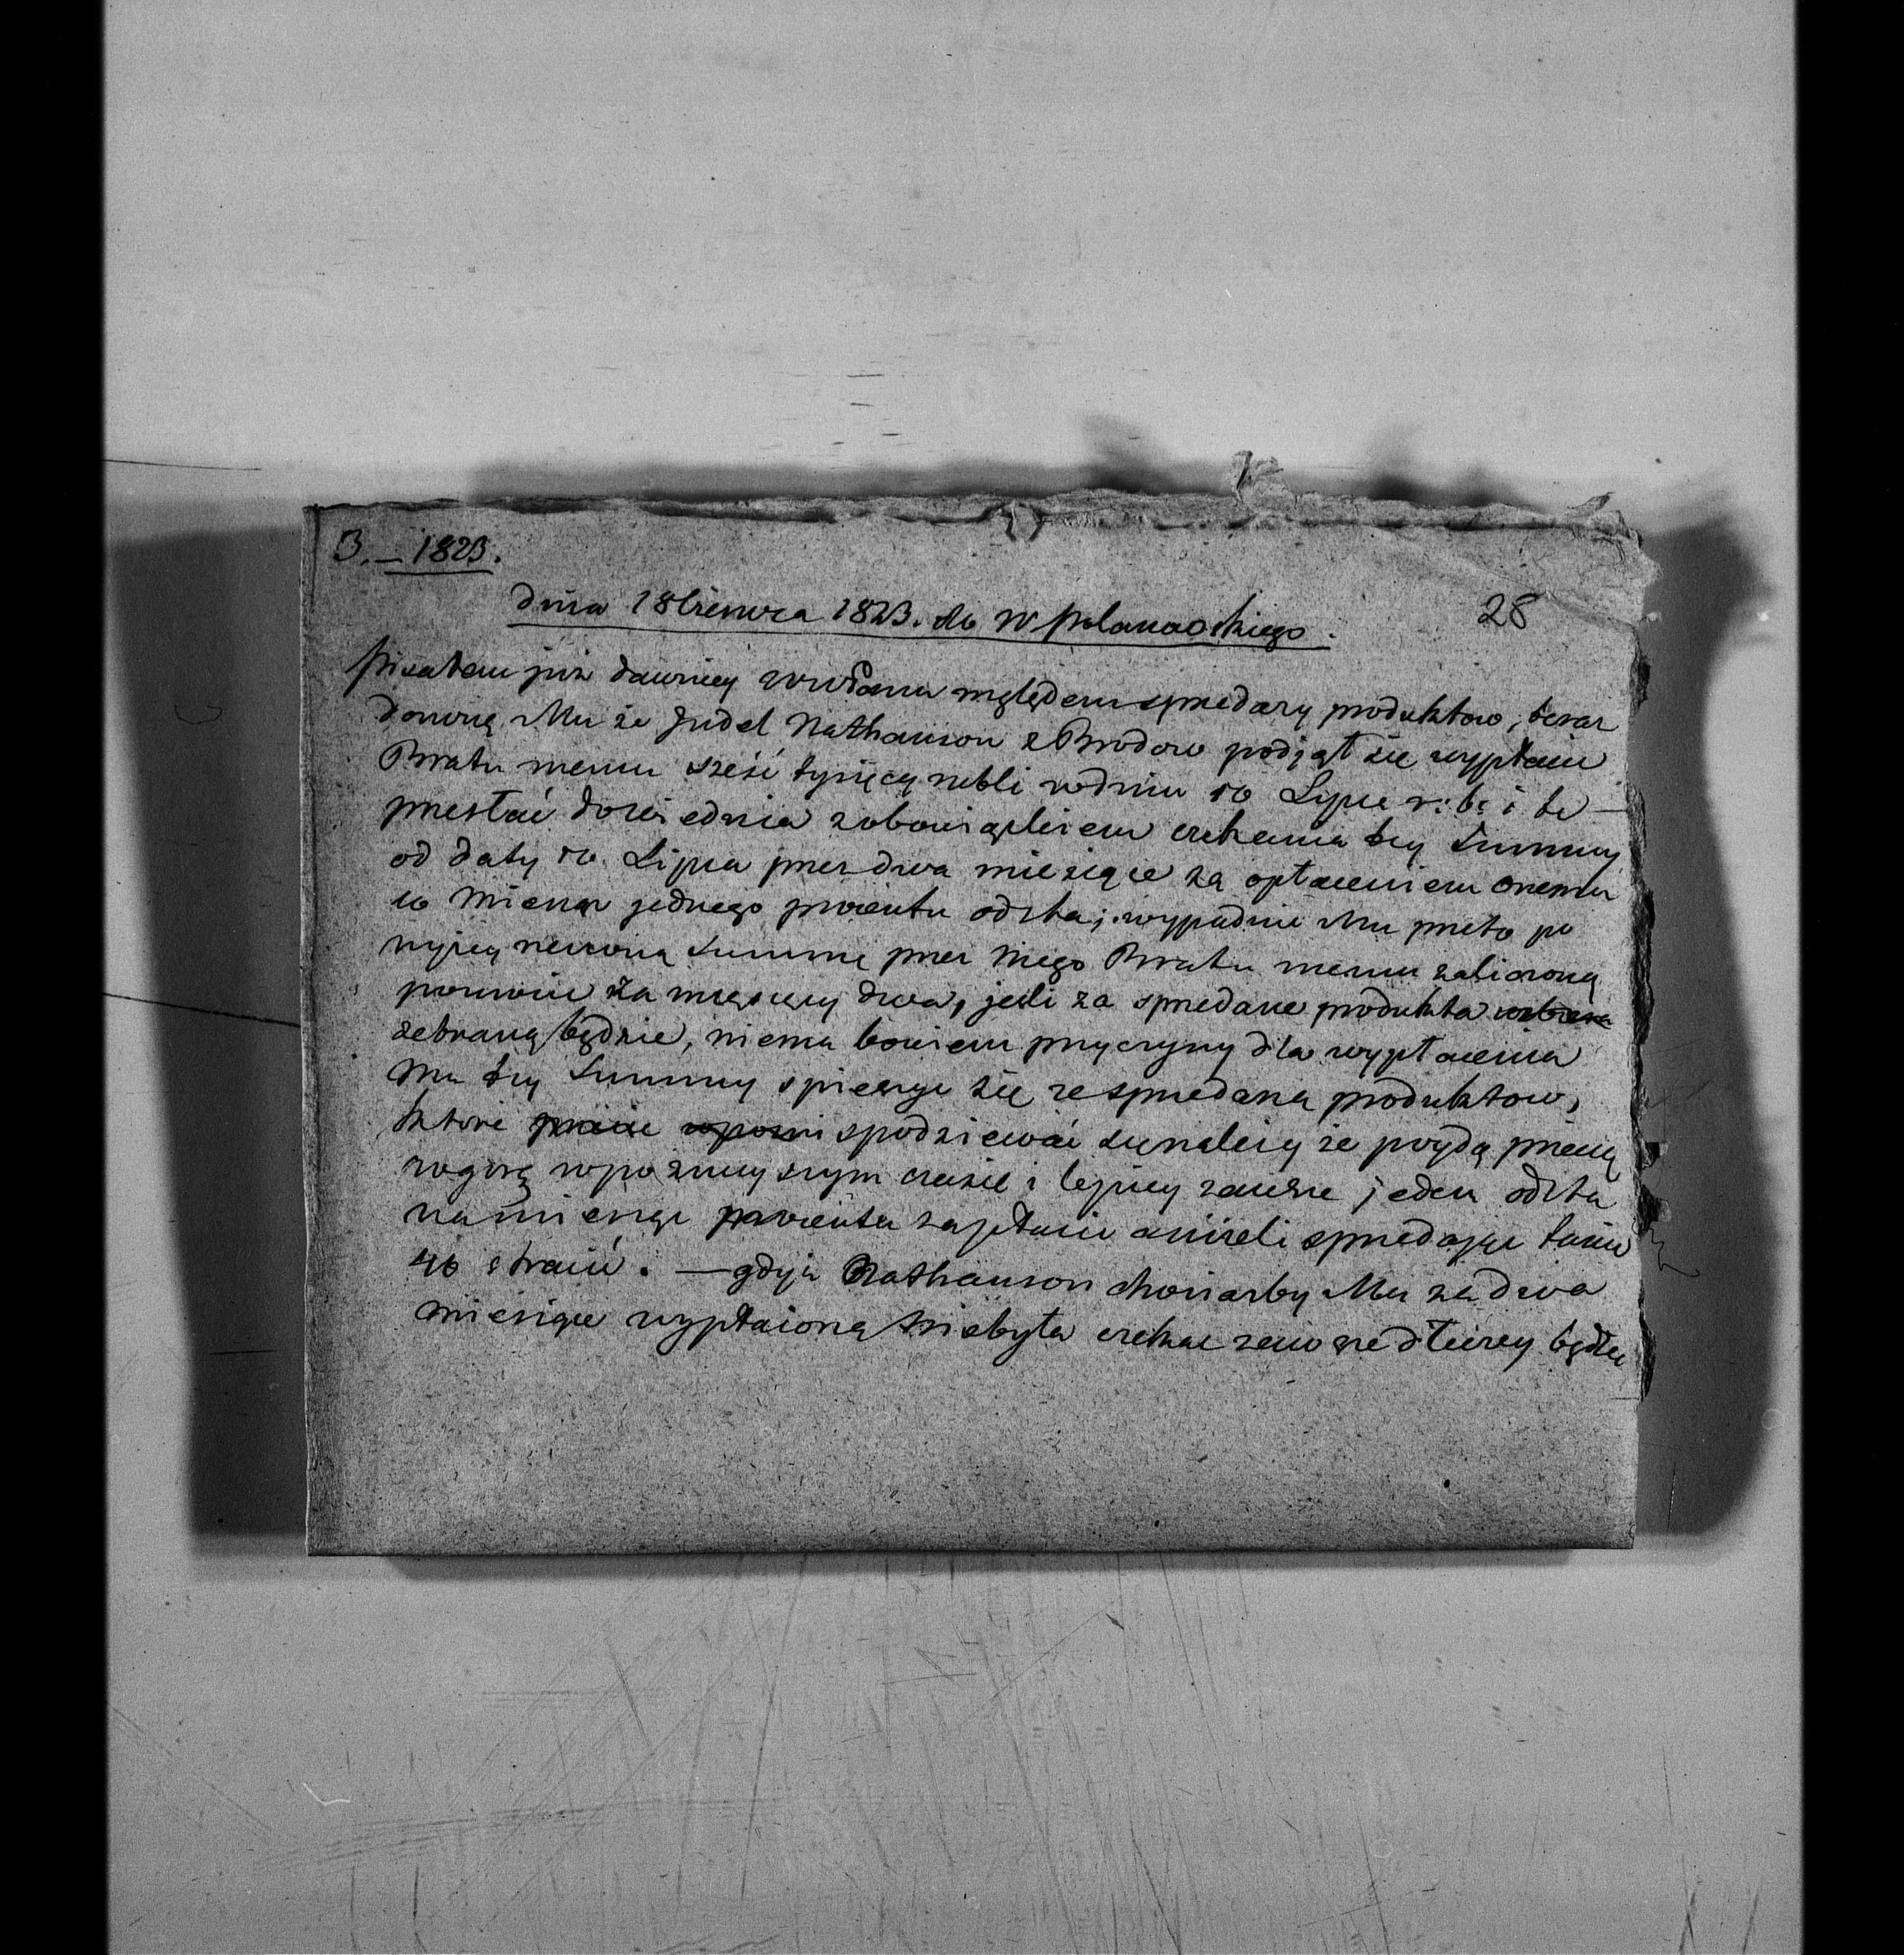 3. — 1823.
28
dnia 18 Czerwca 1823. do W Polanowskiego.
Pisałem już dawniey względem sprzedaży produktow, teraz
donoszę Mu że Judel Nathanson z Brodow podjął się wypłacić
Bratu memu sześć tysięcy rubli w dniu 10 Lipca r: b: i te
przesłać do Wiednia z obowiązkiem czekania tey Summy
od daty 10. Lipca przez dwa miesiące za opłaceniem onemu
co Miesiąc jednego procentu od sta; wypadnie Mu przeto po
wyżey rzeczoną Summę przez niego Bratu memu zaliczoną
powrócić za miesięcy dwa, jeśli za sprzedane produkta
zebraną będzie, niema bowiem przyczyny dla wypłacenia
Mu tey Summy spieszyć się ze sprzedażą produktow,
ktore spodziewać się należy że poydą w górę
w poźnieyszym czasie i lepiey zawsze jeden od sta
na miesiąc procentu zapłacić aniżeli sprzedając tanio
40 stracić. — gdyż Nathanson chociażby Mu za dwa
miesiące wypłaconą niebyła czekać zawsze dłużey będzie